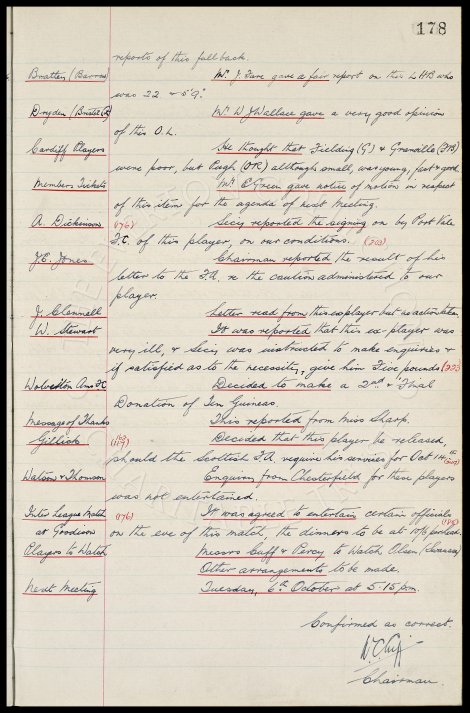 178
reports of this full back.
Bratten (Barrow) Mr. J. Fare gave a fair report on this L.H.B who
was 22 & 5'9".
Dryden (Bristol R) Mr. W J Wallace gave a very good opinion
of this O.L.
Cardiff Players He thought that Fielding (G) & Granville (FB)
were poor, but Pugh (OR) although small, was young, fast & good.
Members Tickets Mr. E Green gave notice of motion in respect
of this item for the agenda of next Meeting.
A. Dickinson (176) Secy reported the signing on by Port Vale
F.C. of this player, on our conditions. (203)
J.E. Jones Chairman reported the result of his
letter to the F.A. re the caution administered to our
player.
J. Clennell Letter read from this ex player but no action taken.
W. Stewart It was reported that this ex-player was
very ill, & Secy was instructed to make enquiries &
if satisfied as to the necessity, give him Five pounds
Wolverton Ams FC Decided to make a 2nd & Final
Donation of Ten Guineas.
Message of Thanks This reported from Miss Sharp.
Gillick Decided that this player be released,
should the Scottish F.A. require his services for Oct 14th
Watson & Thomson Enquiry from Chesterfield for these players
was not entertained.
Inter League Match (176) It was agreed to entertain certain officials
at Goodison on the eve of this match, the dinners to be at 10/6 per head.
Players to Watch Messrs Cuff & Percy to Watch Olsen (Swansea)
Other arrangements to be made.
Next Meeting Tuesday, 6th October at 5.15 pm.
Confirmed as correct.
W.C. Cuff
Chairman.